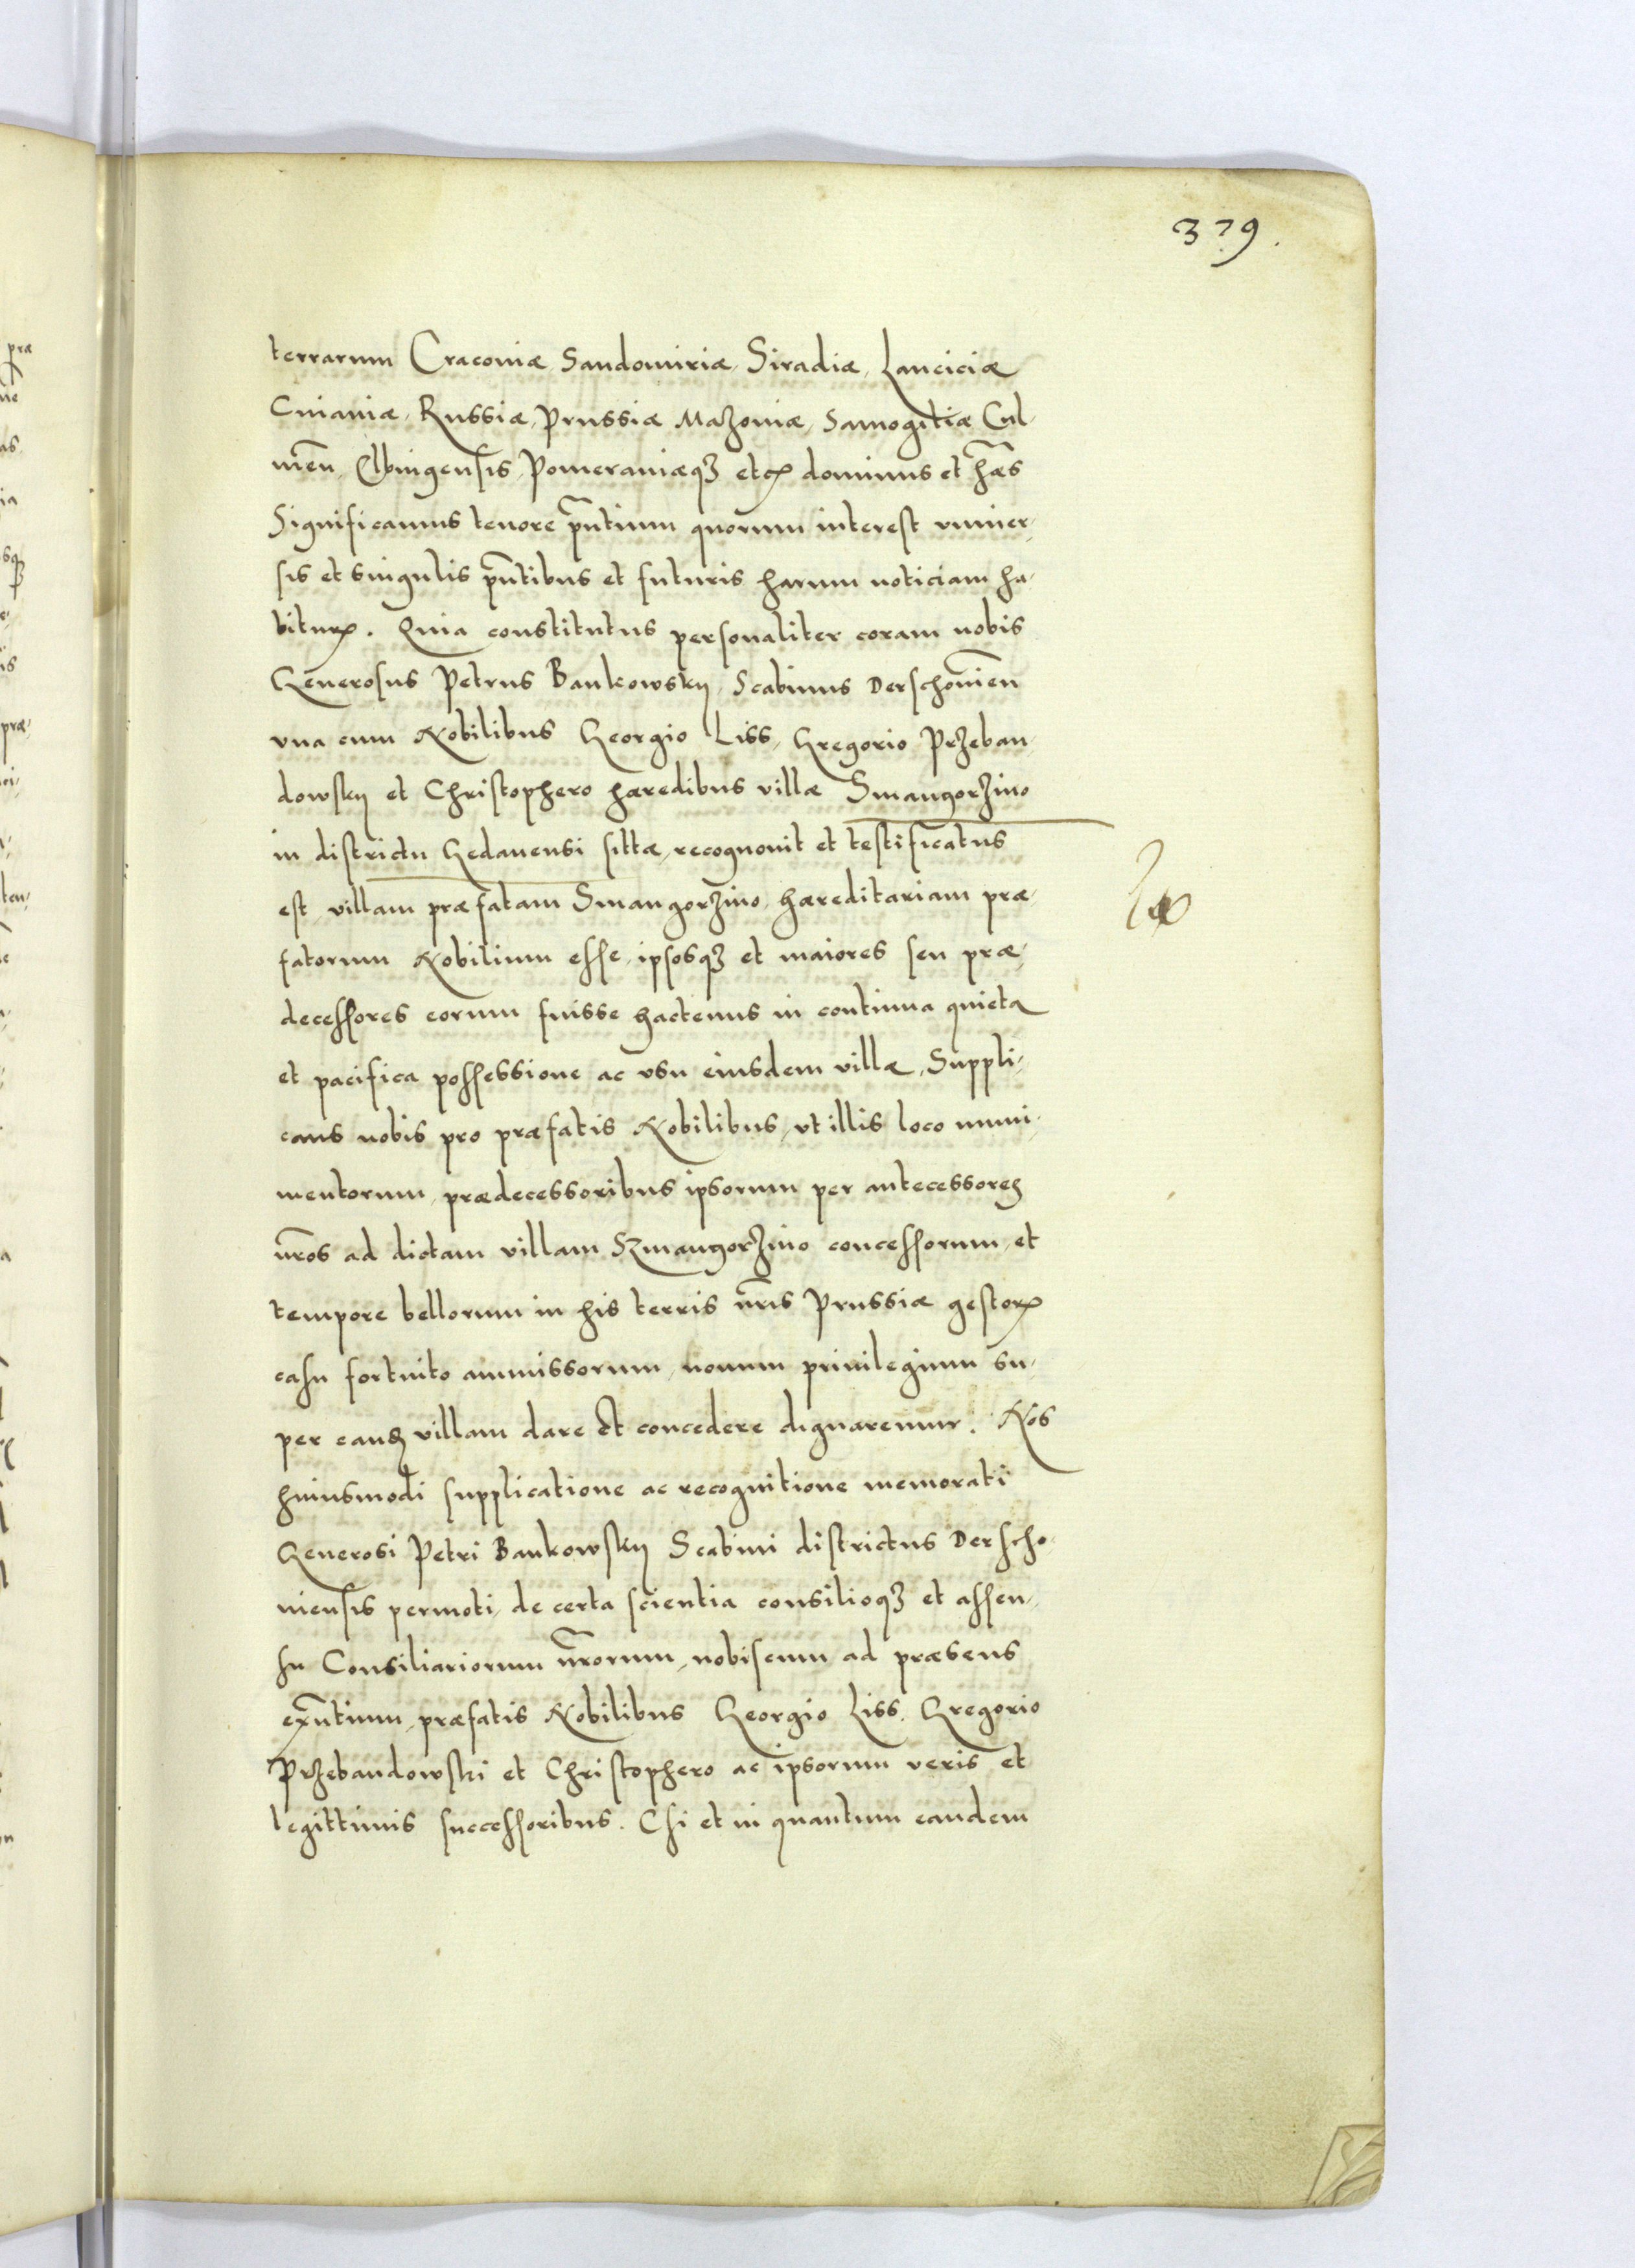 379.
terrarum Cracoviæ, Sandomiriæ, Siradiæ, Lanciciæ
Cuiaviæ, Russiæ, Prussiæ Mazoviæ, Samogitiæ Cul-
meñ, Elbingensis, Pomeraniæqꝫ etcꝝ dominus et hæ̃s
Significamus tenore pñtium quorum interest vniuer-
sis et singulis pñtibus et futuris harum noticiam ha-
bituꝝ. Quia constitutus personaliter coram nobis
Generosus Petrus Bankowsky, Scabinus Derschovieñ
vna cum Nobilibus Georgio Liss, Gregorio Przeban-
dowsky et Christophero hæredibus villæ Smangorzino
in districtu Gedanensi sittæ, recognouit et testificatus
est villam præfatam Smangorzino, hæreditariam præ-
fatorum Nobilium esse, ipsosqꝫ et maiores seu præ-
decessores eorum fuisse hactenus in continua quieta
et pacifica possessione ac vsu eiusdem villæ, Suppli-
cans nobis pro præfatis Nobilibus, vt illis loco muni-
mentorum, prædecessoribus ipsorum per antecessores
nr̃os ad dictam villam Szmangorzino concessorum, et
tempore bellorum in his terris nr̃is Prussiæ gestoꝝ
casu fortuito ammissorum, nouum priuilegium su-
per eanđ villam dare et concedere dignaremur. Nos
huiusmodi supplicatione ac recognitione memorati
Generosi Petri Bankowsky Scabini districtus Derscho-
uiensis permoti, de certa scientia consilioqꝫ et assen-
su Consiliariorum nr̃orum, nobiscum ad præsens
exñtium, præfatis Nobilibus Georgio Liss. Gregorio
Przebandowski et Christophero ac ipsorum veris et
legittimis successoribus. Csi et in quantum eandem